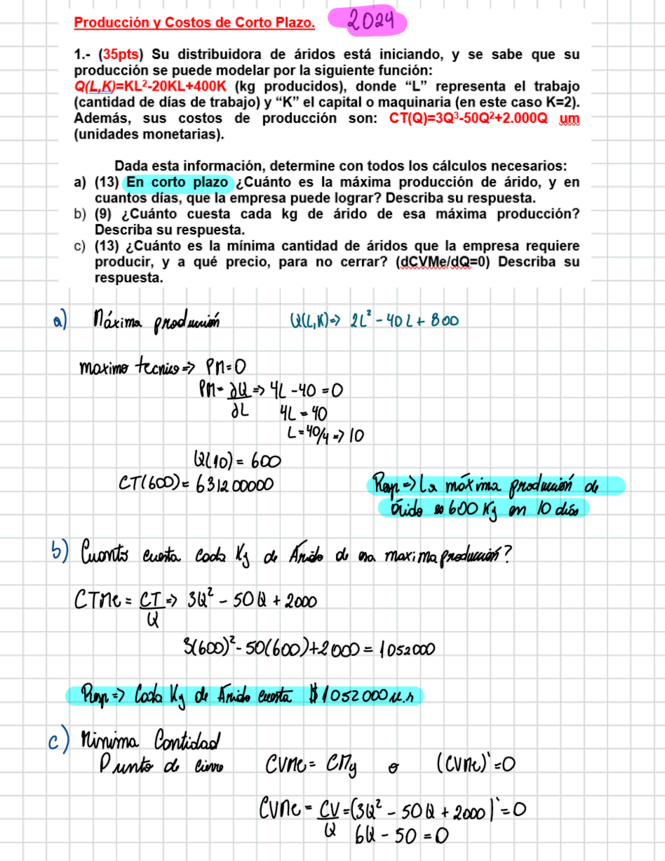 Producción y Costos de Corto Plazo. 2024
1.- (35pts) Su distribuidora de áridos está iniciando, y se sabe que su
producción se puede modelar por la siguiente función:
Q(L,K)=KL²-20KL+400K (kg producidos), donde “L” representa el trabajo
(cantidad de días de trabajo) y “K” el capital o maquinaria (en este caso K=2).
Además, sus costos de producción son: CT(Q)=3Q³-50Q²+2.000Q um
(unidades monetarias).
Dada esta información, determine con todos los cálculos necesarios:
a) (13) En corto plazo ¿Cuánto es la máxima producción de árido, y en
cuantos días, que la empresa puede lograr? Describa su respuesta.
b) (9) ¿Cuánto cuesta cada kg de árido de esa máxima producción?
Describa su respuesta.
c) (13) ¿Cuánto es la mínima cantidad de áridos que la empresa requiere
producir, y a qué precio, para no cerrar? (dCVMe/dQ=0) Describa su
respuesta.
a) Máxima producción Q(L,K)=> 2L² - 40L + 800
maximo tecnico => PM=0
PM = ∂Q/∂L => 4L - 40 = 0
4L = 40
L = 40/4 => 10
Q(10) = 600
CT(600) = 631200000
Resp => La máxima producción de
Árido es 600 Kg en 10 días
b) Cuanto cuesta cada Kg de Árido de esa maxima producción?
CTMe = CT/Q => 3Q² - 50Q + 2000
3(600)² - 50(600) + 2000 = 1052000
Resp => Cada Kg de Árido cuesta $1052000 u.n
c) Minima Cantidad
Punto de cierre CVMe = CMg o (CVMe)' = 0
CVMe = CV/Q = (3Q² - 50Q + 2000)' = 0
6Q - 50 = 0